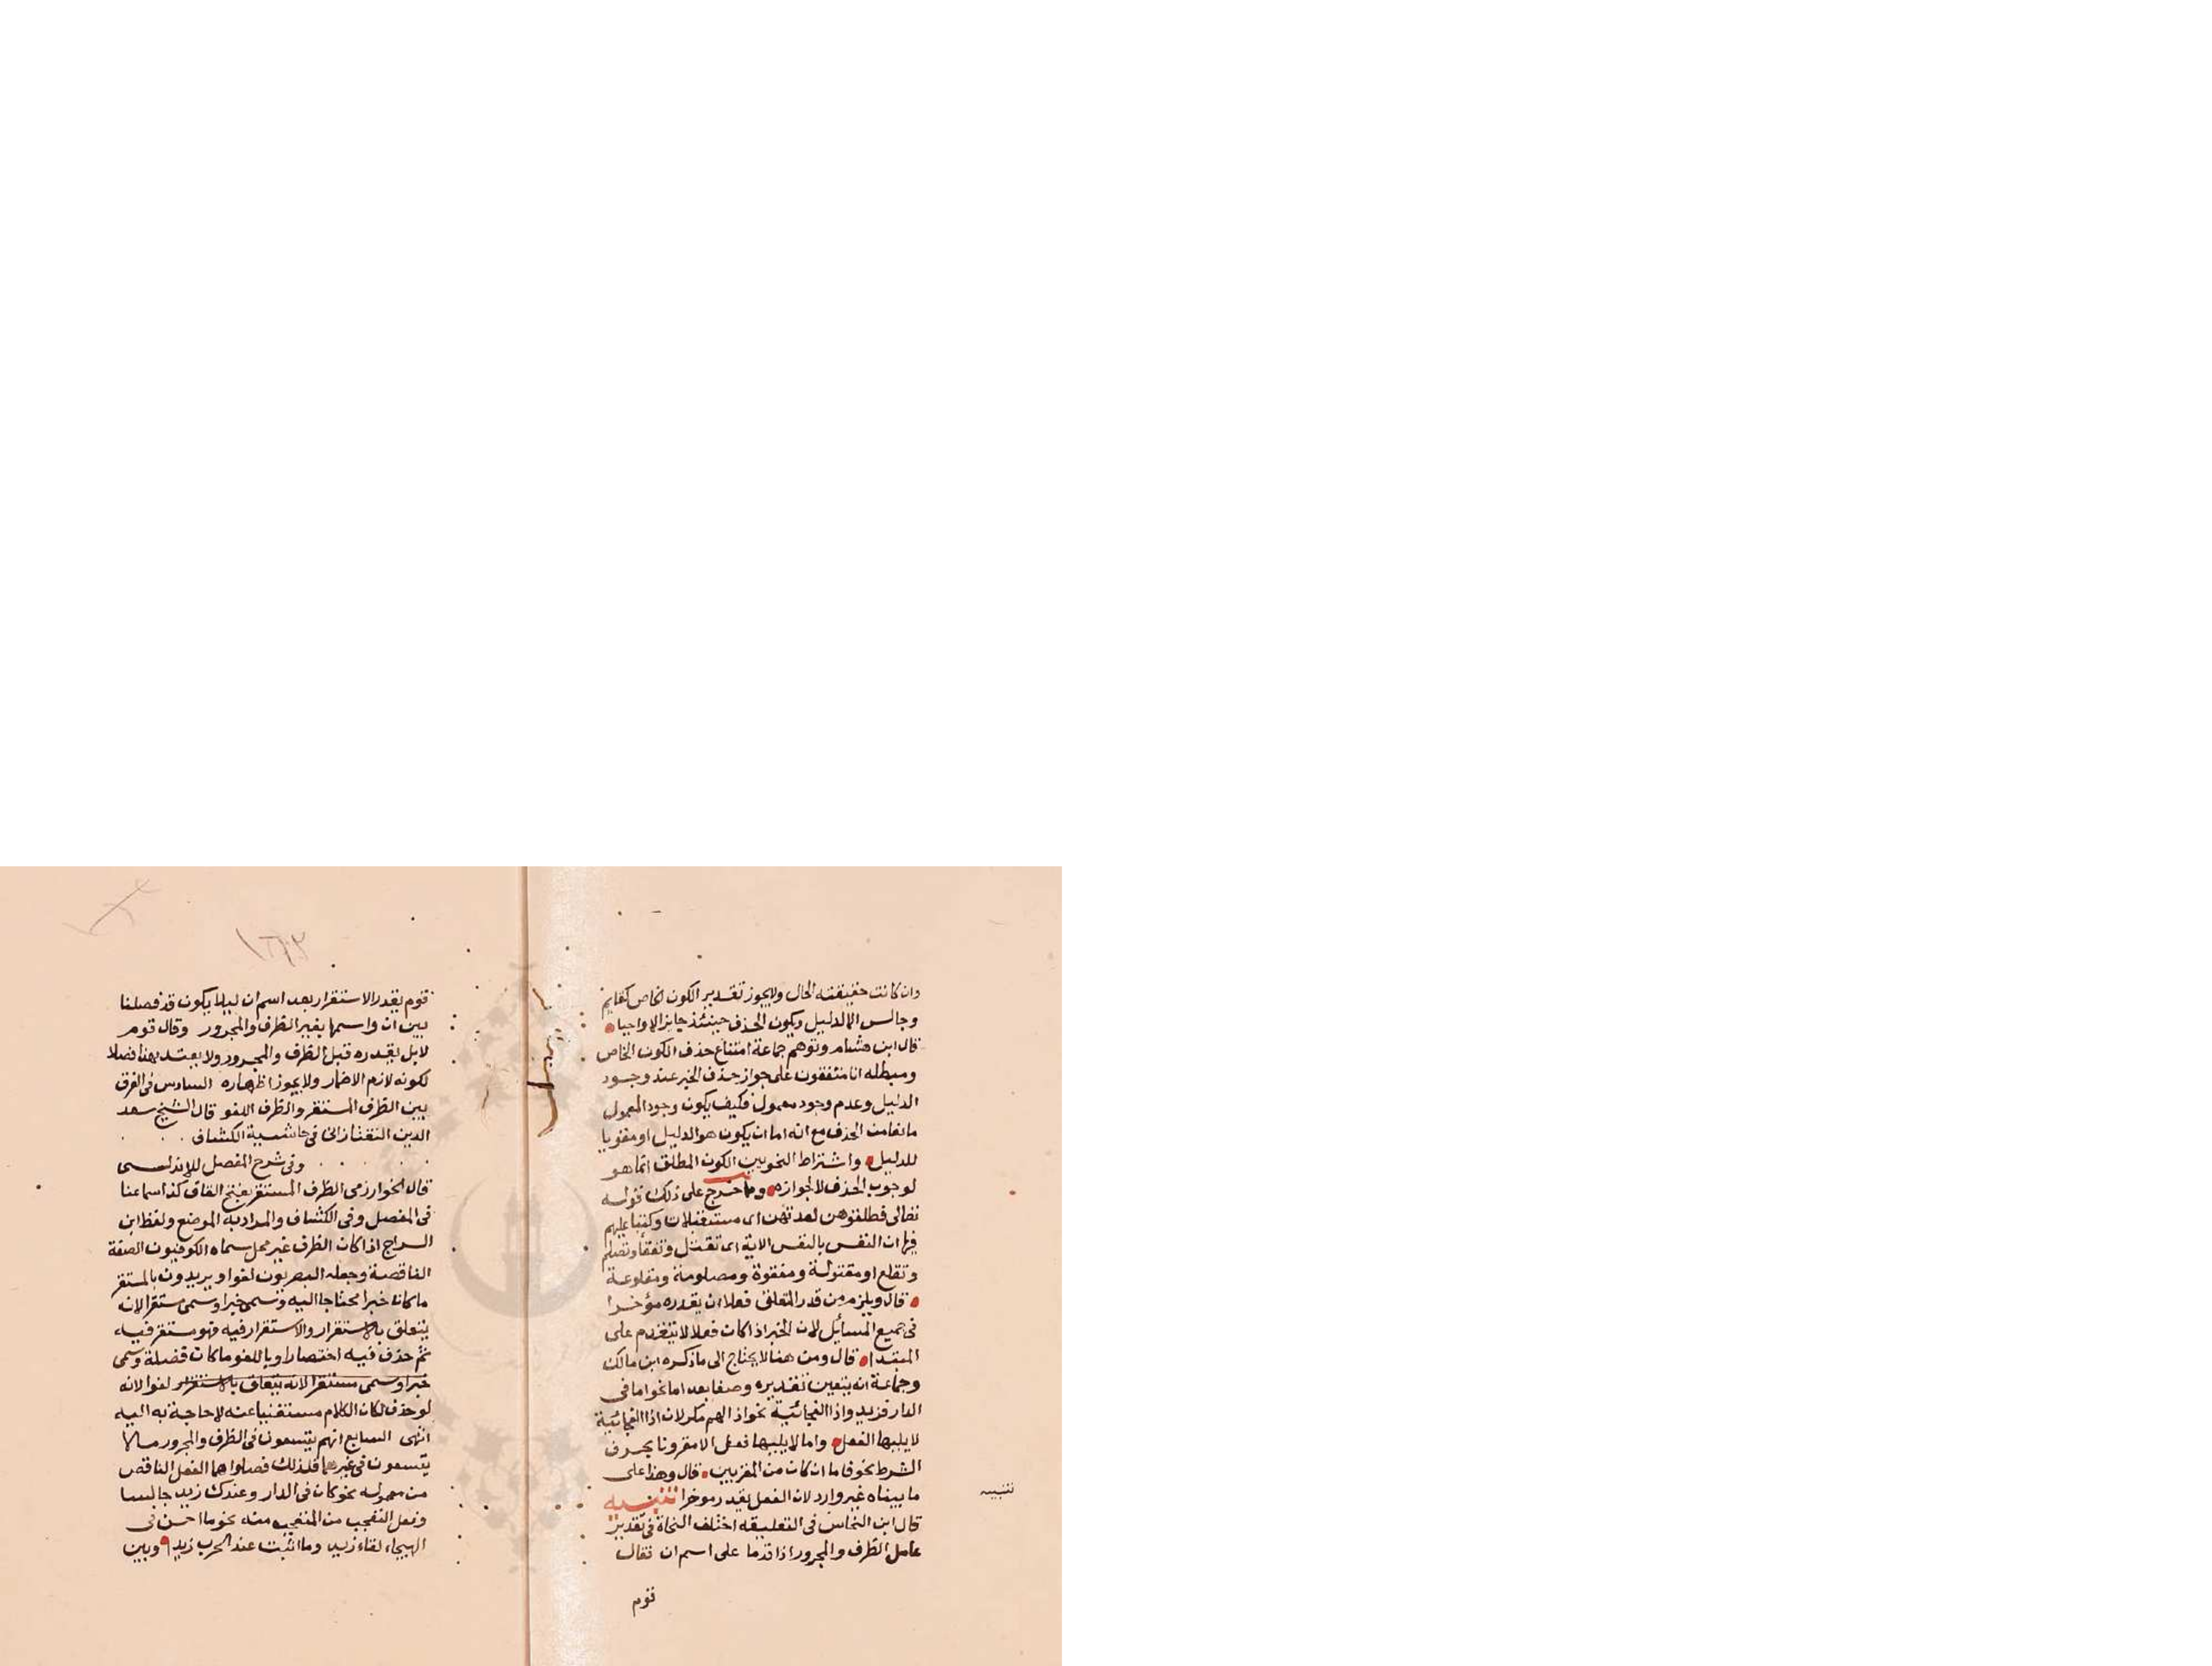 وان كانت حقيقته الحال ولايجوز تقدير الكون الخاص كقايم
وجالس الالدليل ويكون الحذف حينئذ جايزا لا واجبا
قال ابن هشام وتوهم جماعة امتناع حذف الكون الخاص
ومبطله انا متفقون على جواز حذف الخبر عند وجود
الدليل وعدم وجود معمول فكيف يكون وجود المعمول
مانعا من الحذف مع انه اما ان يكون هو الدليل او مقويا
للدليل واشتراط النحويين الكون المطلق انما هو
لوجوب الحذف لا لجوازه ومما خرج على ذلك قوله
تعالى فطلقوهن لعدتهن اى مستقبلات وكتبنا عليهم
فيها ان النفس بالنفس الاية اى تقتل وتفقأ وتصلم
وتقلع او مقتولة ومفقوة ومصلومة ومقلوعة
قال ويلزم من قدر المتعلق فعلا ان يقدره مؤخرا
فى جميع المسائل لان الخبر اذا كان فعلا لا يتقدم على
المبتدا قال ومن هنا لا يحتاج الى ماذكره ابن مالك
وجماعة انه يتعين تقديره وصفا بعد اما نحو اما فى
الدار فزيد واذا الفجائية نحو اذا لهم مكر لان اذا الفجائية
لا يليها الفعل واما لا يليها فعل الا مقرونا بحرف
الشرط نحو فاما ان كان من المقربين قال وهذا على
ما بيناه غير وارد لان الفعل يقدر موخرا تنبيه
تنبيه
قال ابن النحاس فى التعليقه اختلف النحاة فى تقدير
عامل الظرف والمجرور اذا قدما على اسم ان فقال
قوم
قوم يقدر الاستقرار بعد اسم ان ليلا يكون قد فصلنا
بين ان واسمها بغير الظرف والمجرور وقال قوم
لا بل يقدره قبل الظرف والمجرور ولا يعتد بهذا فصلا
لكونه لازم الاضمار ولا يجوز اظهاره السادس فى الفرق
بين الظرف المستقر والظرف اللغو قال الشيخ سعد
الدين التفتازانى فى حاشية الكشاف
وفى شرح المفصل للاندلسى
قال الخوارزمى الظرف المستقر بفتح القاف كذا سماعنا
فى المفصل وفى الكشاف والمراد به الموضع ولفظ ابن
السراج اذا كان الظرف غير محل سماه الكوفيون الصفة
الناقصة وجعله البصريون لغوا ويريدون بالمستقر
ما كان خبرا محتاجا اليه وسمى خبرا وسمى مستقرا لانه
يتعلق بالاستقرار والاستقرار فيه فهو مستقر فيه
ثم حذف فيه اختصارا وباللغو ما كان فضلة وسمى
خبرا وسمى مستقرا لانه يتعلق بالاستقرار لغوا لانه
لو حذف لكان الكلام مستغنيا عنه لا حاجة به اليه
انتهى السابع انهم يتسعون فى الظرف والمجرور مالا
يتسعون فى غيرهما فلذلك فصلوا بهما الفعل الناقص
من معموله نحو كان فى الدار وعندك زيد جالسا
وفعل التعجب من المتعجب منه نحو ما احسن فى
الهيجاء لقاء زيد وما اثبت عند الحرب زيدا وبين